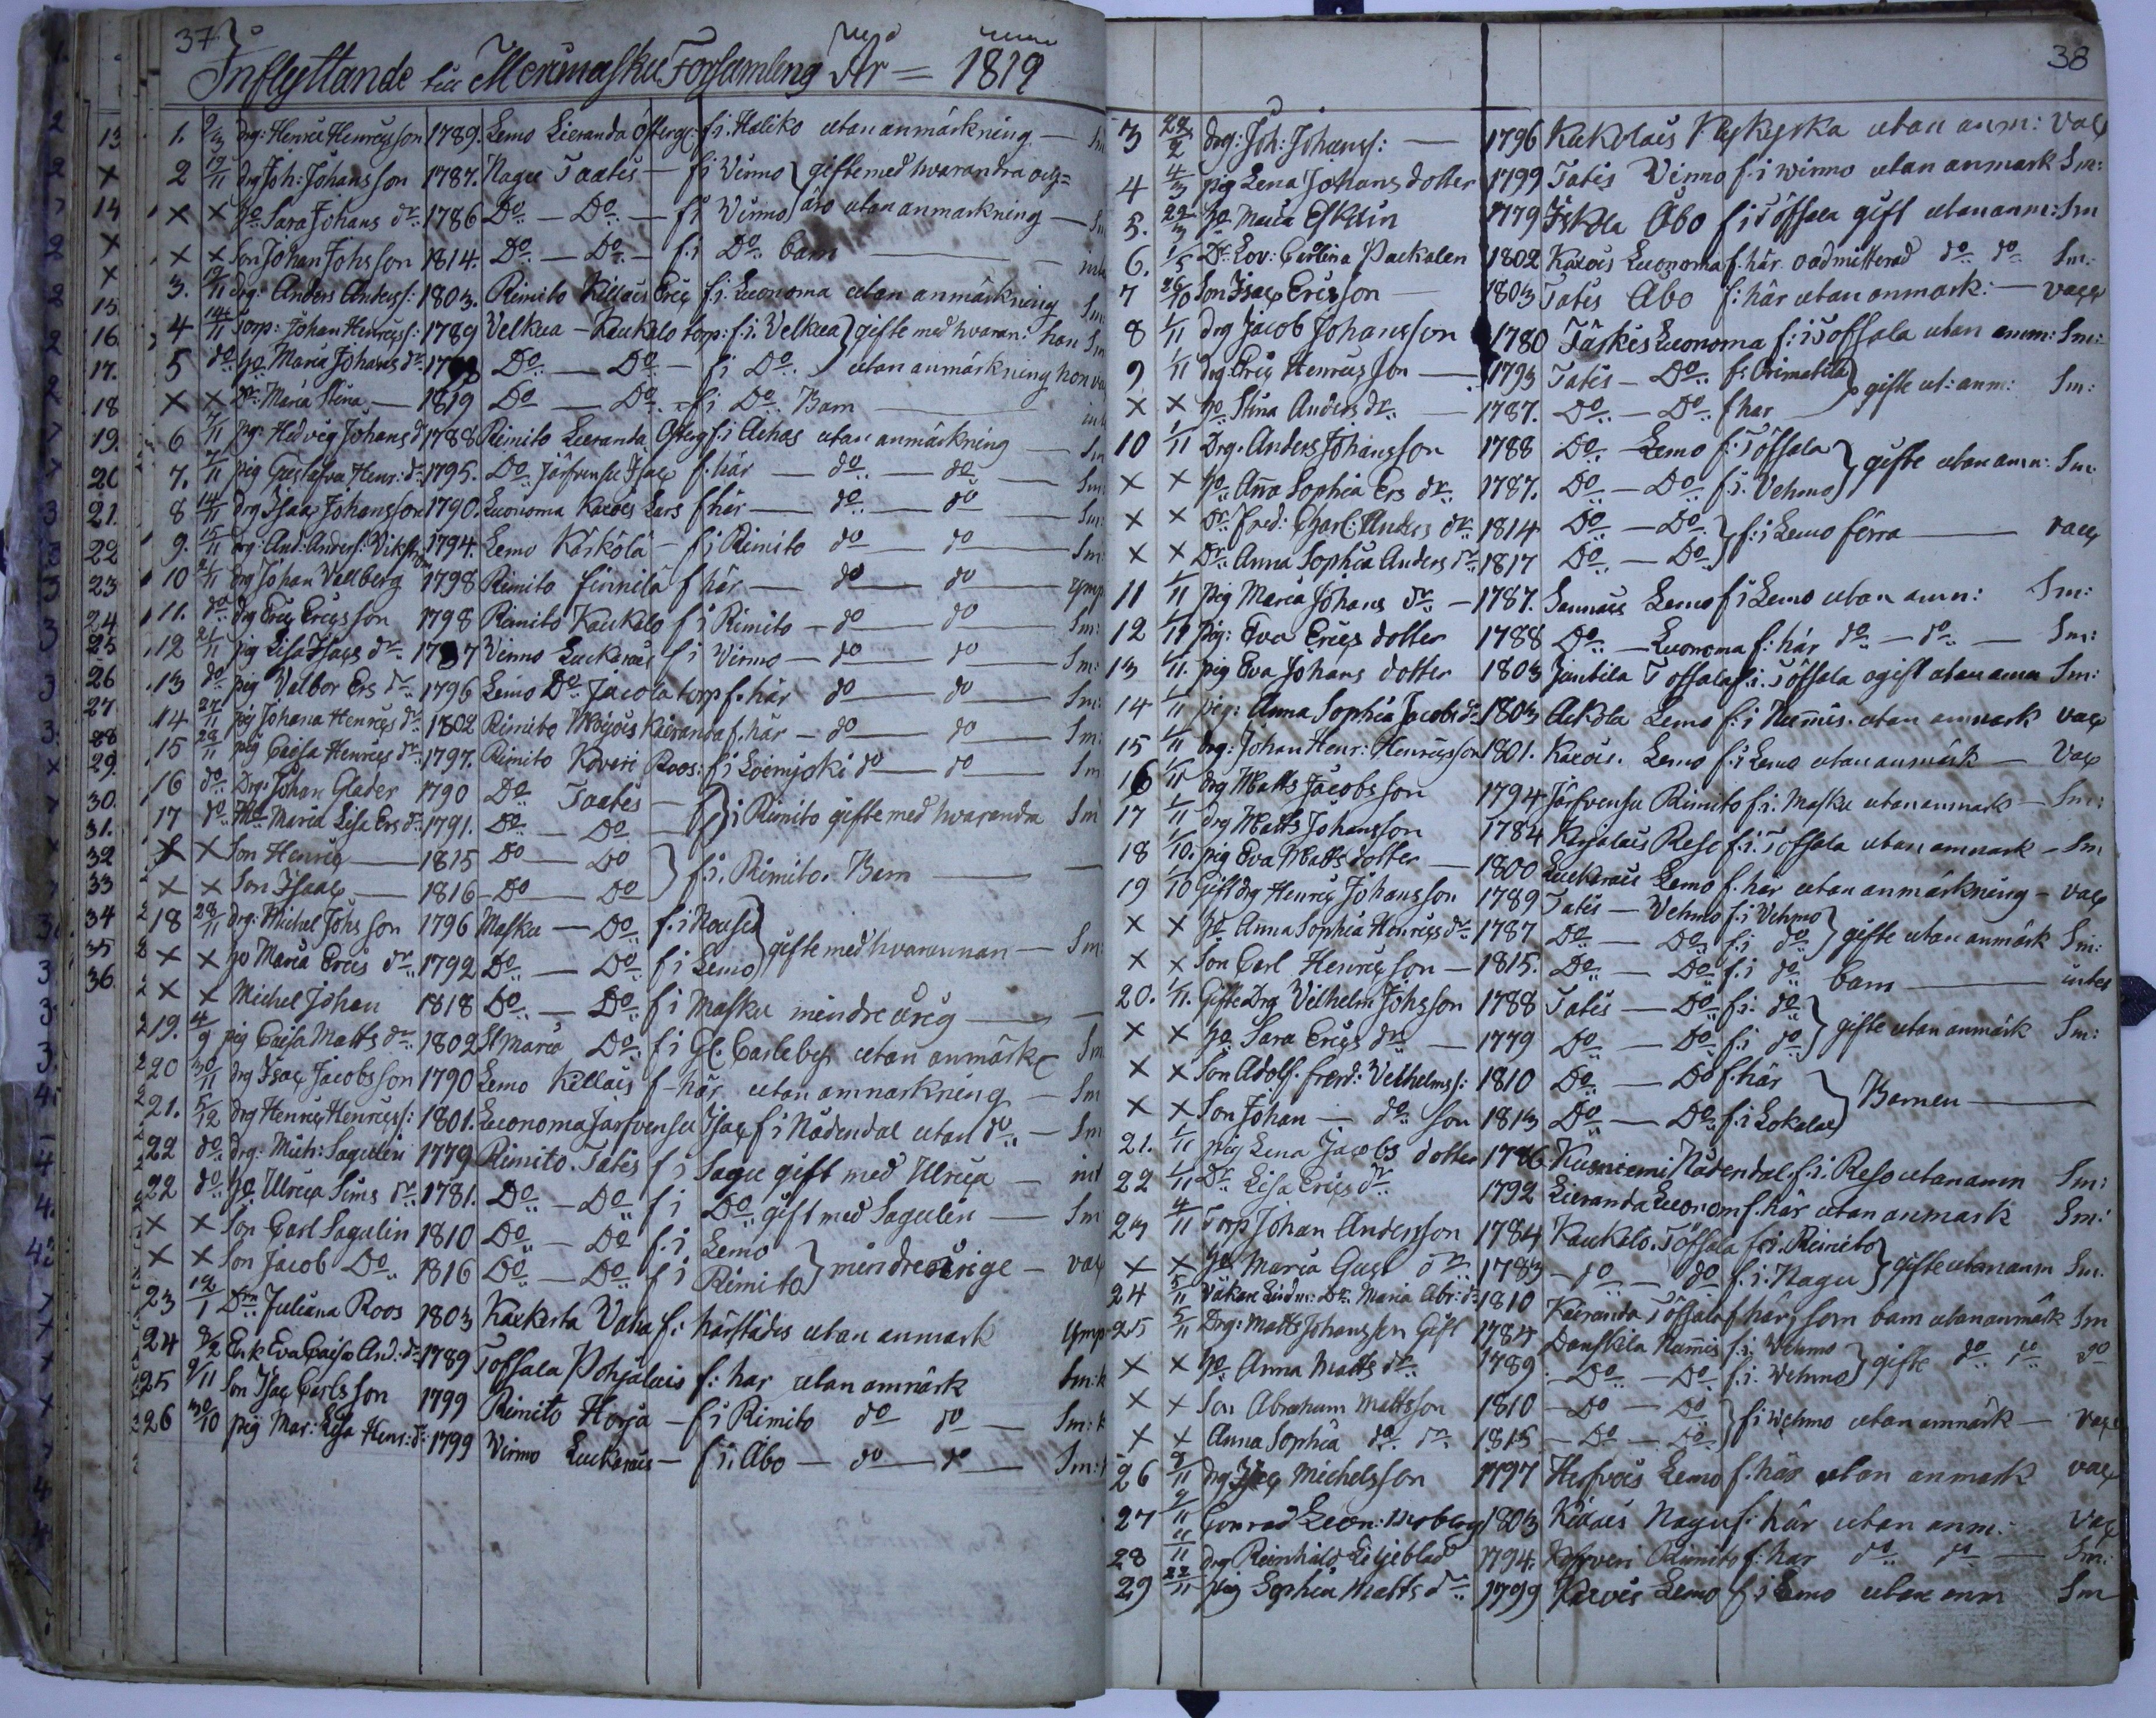 37
Inflyttande till Merimasku Församling År = 1819
1. drg: Henric Henricsson 1789. Lemo Lieranda Österg: f: i Haliko utan anmärkning — Sm
2 19/11 drg Joh: Johansson 1787. Nagu Taatis — f i Virmo gifte med hvarandra och
x x ho Sara Johans dr. 1786 Do — Do — f i Virmo äro utan anmärkning — Sm
x x Son Johan Johsson 1814. Do — Do — f: i Do barn
3. 19/11 drg: Anders Anders: 1803. Rimito Killais Eric f: i Luonoma utan anmärkning Sm
4 14/11 torp: Johan Henrics: 1789 Velkua — Kaukalo torp: f: i Velkua gifte med hvaran: han Sm
5 do ho Maria Johans dr. Do — Do — f i Do utan anmärkning hon
x x Dr Maria Stina — 1819 Do — Do — f i Do Barn
6 7/11 pig: Hedvig Johans dr 1788 Rimito Lieranda Österg f: i utan anmärkning — Sm
7. 7/11 pig Gustafva Henr: dr 1795. Do Järfvensu Isac f. här — do — do — Sm:
8 14/11 drg Isaac Johansson 1790. Luonoma Karois Lars f här — do — do — Sm:
9. 15/11 drg: And: Anders: Vikström 1794. Lemo Käskölä — f i Rimito do — do — Sm:
10 21/11 drg Johan Vallberg 1798 Rimito finnilä f här — do — do
11. do drg Eric Ericsson 1798 Rimito Kaukalo f i Rimito — do — do Sm:
12 21/11 pig Lisa Isacs dr. Virmo Luckarais f i Virmo — do — do Sm:
13 do pig Valbor Ers dr 1796 Lemo Do Jacola torp f. här do — do Sm:
14 27/11 pig Johana Henrics dr 1802 Rimito Kaeranda f. här — do — do Sm:
15 28/11 pig Caisa Henrics dr. 1797. Rimito Roos: f i Loimjoki do — do Sm
16 do Drg: Johan Glader 1790 Do Taatis —
17 do Maria Lisa Ers dr. 1791. Do — Do f i Rimito gifte med hvarandra Sm
x x Son Henric — 1815 Do — Do
x x Son Isaac — 1816 — Do — Do f: i. Rimito. Barn —
18 28/11 drg: Michel Johs son 1796 Masku — Do f. i Nousis
x x ho Maria Erics dr. 1792 Do — Do f i Lemo gifte med hvarannan — Sm:
x x Michel Johan 1818 Do — Do f i Masku mindre årig —
19. 4/9 pig Caisa Matts dr. 1802 St Maria Do f i Gl: Carleby utan anmärk Sm
20 30/11 drg Isac Jacobsson 1790 Lemo Killais f. här utan anmärkning — Sm
21. 5/12 drg Henric Henrics: 1801. Luonoma Järfvensu Isac f i Nådendal utan do — Sm
22 do drg: Mich: Sagulin 1779 Rimito Tatis f i Sagu gift med Ulrica —
22 do ho Ulrica Sims dr. 1781. Do — Do f i Do gift med Sagulin — Sm
x x Son Carl Sagulin 1810 Do — Do f. i Lemo
x x Son Jacob Do 1816 Do — Do f i Rimito mindreårige — vac
23 12/1 Juliana Roos 1803 Kaukola f: härstädes utan anmark
24 8/2 Enk Eva Caisa And. dr 1789 Töfsala Pohjalais f: här utan anmärk Sm:
25 9/11 Son Isac Carlsson 1799 Rimito Horja — f i Rimito do do — Sm:
26 30/10 pig Mar: Lisa Henr: dr 1799 Virmo Luckarais — f i. Åbo — do — do — Sm:
38
3 28/2 drg: Joh: Johans: — 1796 Kukolais utan anm: vac
4 4/3 pig Lena Johans dotter 1799 Tatis Virmo f: i wirmo utan anmark Sm:
5. 22/3 ho Maria Eskelin 1779 Åbo f i Töfsala gift utan anm: Sm
6. 1/5 Dr Lov: Carlina Packalen 1802 Karois Luonoma f. här oadmitterad do do Sm:
7 26/10 Son Isac Ericsson — 1803 Tatis Åbo f: här utan anmark: — vac
8 1/11 drg Jacob Johansson 1780 Luonoma f: i Töfsala utan anm: Sm:
9 1/11 drg: Eric Henricsson — 1793 Tatis — Do f: Orimatila
x x ho Stina Anders dr. — 1787. Do — Do f här gifte ut: anm: Sm:
10 1/11 Drg. Anders Johansson 1788 Do — Lemo f: Töfsala
x x ho Anna Sophia Ers dr. 1787. Do — Do f: i. Vehmo gifte utan anm: Sm:
x x Dr fred: Charl: Anders dr. 1814 Do — Do
x x Dr Anna Sophia Anders dr. 1817 Do — Do f: i Lemo förra — vac
11 1/11 pig Maria Johans dr. — 1787. Lemo f i Lemo utan anm: Sm:
12 1/11 pig: Eva Erics dotter 1788 Do — Luonoma f: här do — do — Sm:
13 1/11. pig Eva Johans dotter 1803 Jantila Töfsala f. i. Töfsala ogift utan anm Sm:
14 1/11 pig: Anna Sophia Jacobs dr 1803 Lemo f: i Nummis. utan anmark vac
15 1/11 drg: Johan Henr: Henricsson 1801. Karois. Lemo f: i Lemo utan anmärk — Vac
16 1/11 drg Matts Jacobsson 1794 Järfvensu Rimito f: i: Masku utan anmark — Sm:
17 1/11 drg Matts Johansson 1784 Karjalais Reso f: i. Töfsala utan anmark — Sm
18 1/10. pig Eva Matts dotter — 1800 Luckarais Lemo f. här utan anmärkning — vac
19 1/10 Gift drg Henric Johansson 1789 Tatis — Vehmo f: i Vehmo
x x ho Anna Sophia Henrics dr. 1787 Do — Do f: i do gifte utan anmärk Sm:
x x Son Carl Henricson — 1815. Do — Do f. i do barn — intet
20. 1/11. Gifte Drg Vilhelm Johsson 1788 Tatis — Do f: i: do
x x ho Sara Erics dr. — 1779 Do — Do f: i do gifte utan anmärk Sm:
x x Son Adolf. Fred: Vilhelms: 1810 Do — Do f. här
x x Son Johan — do son 1813 Do — Do f: i Lokalax Barnen —
21. 1/11 pig Lena Jacobs dotter Nådendal f. i. Reso utan anm Sm:
22 1/11 Dr Lisa Erics dr. 1792 Lieranda Luonom f. här utan anmark Sm:
23 4/11 Torp Johan Andersson 1784 Kaukalo. Töfsala f: i. Rimito
x x ho Maria Gust dr. 1783 — do — do f. i. Nagu gifte utan anm Sm.
24 5/11 Dr. Maria Abr: dr 1810 Kaeranda Töfsala f här, som barn utan anmärk Sm
25 5/11 Drg: Matts Johansson Gift 1784 Danskila Nummis f. i. Vehmo
x x ho Anna Matts dr. 1789. — Do — Do f: i. Vehmo gifte do do do
x x Son Abraham Mattsson 1810 — Do — Do
x x Anna Sophia do. dr. 1815 — Do — Do f: i Wehmo utan anmärk — Vac
26 8/11 drg Isac Michelsson 1797 Lemo f. här utan anmark vac
27 9/11 Conrad Leon: Moberg 1803 Killais Nagu f: här utan anm: Vac
28 11/11 drg Reinhold Liljeblad 1794. Rimito f: här do do — Sm:
29 22/11 pig Sophia Matts dr. 1799 Karois Lemo f i Lemo utan anm Sm